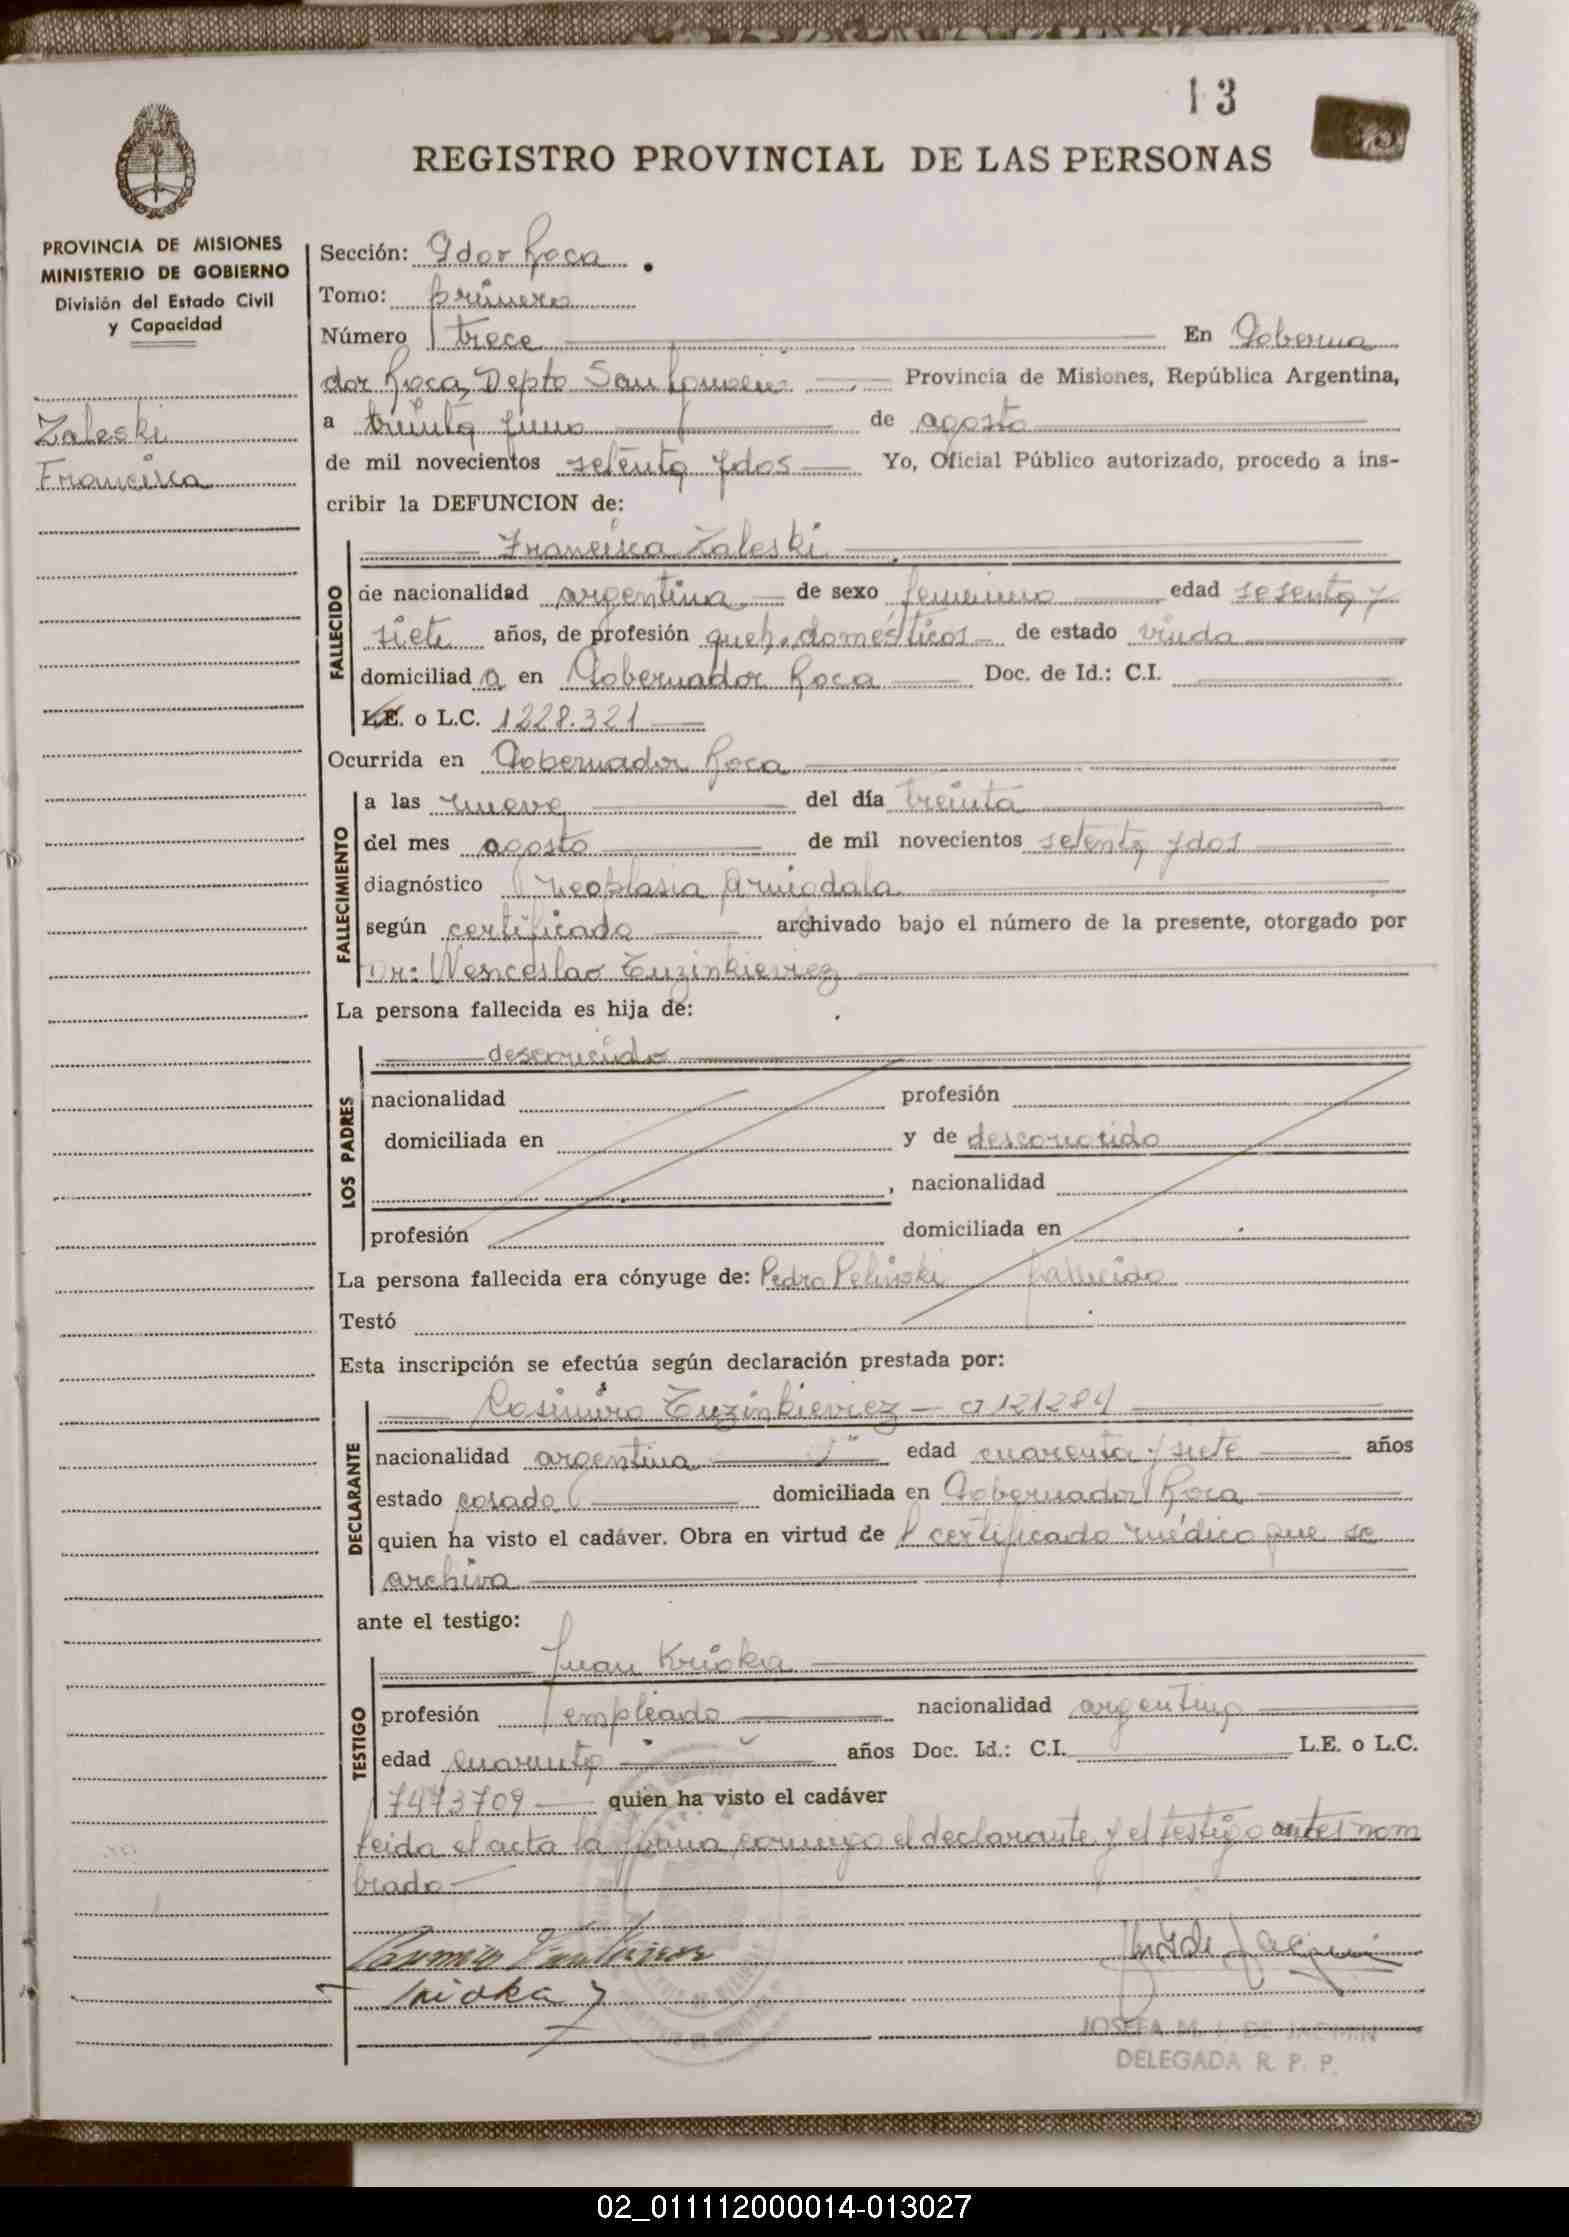 13
REGISTRO PROVINCIAL DE LAS PERSONAS
PROVINCIA DE MISIONES
MINISTERIO DE GOBIERNO
División del Estado Civil
y Capacidad
Zaleski
Francisca
Sección: Gdor Roca
Tomo: primero
Número trece En Goberna
dor Roca, Depto San Ignacio Provincia de Misiones, República Argentina,
a treinta y uno de agosto
de mil novecientos setenta y dos Yo, Oficial Público autorizado, procedo a ins-
cribir la DEFUNCION de:
Francisca Zaleski
FALLECIDO
de nacionalidad argentina de sexo femenino edad sesenta y
siete años, de profesión queh. domésticos de estado viuda
domiciliad a en Gobernador Roca Doc. de Id.: C.I.
L.E. o L.C. 1228.321
Ocurrida en Gobernador Roca
FALLECIMIENTO
a las nueve del día treinta
del mes agosto de mil novecientos setenta y dos
diagnóstico Neoplasia Amigdala
según certificado archivado bajo el número de la presente, otorgado por
Dr: Wenceslao Tuzinkievicz
La persona fallecida es hija de:
LOS PADRES
desconocido
nacionalidad profesión
domiciliada en y de desconocido
, nacionalidad
profesión domiciliada en
La persona fallecida era cónyuge de: Pedro Pelinski fallecido
Testó
Esta inscripción se efectúa según declaración prestada por:
DECLARANTE
Casimiro Tuzinkievicz - CI 121284
nacionalidad argentina edad cuarenta y siete años
estado casado domiciliada en Gobernador Roca
quien ha visto el cadáver. Obra en virtud de l certificado médico que se
archiva
ante el testigo:
TESTIGO
Juan Knioka
profesión empleado nacionalidad argentina
edad cuarenta años Doc. Id.: C.I. L.E. o L.C.
7473709 quien ha visto el cadáver
Leida el acta la firma conmigo el declarante y el testigo antes nom
brado
JOSEFA M. I. DE JACMIN
DELEGADA R. P. P.
02_011112000014-013027